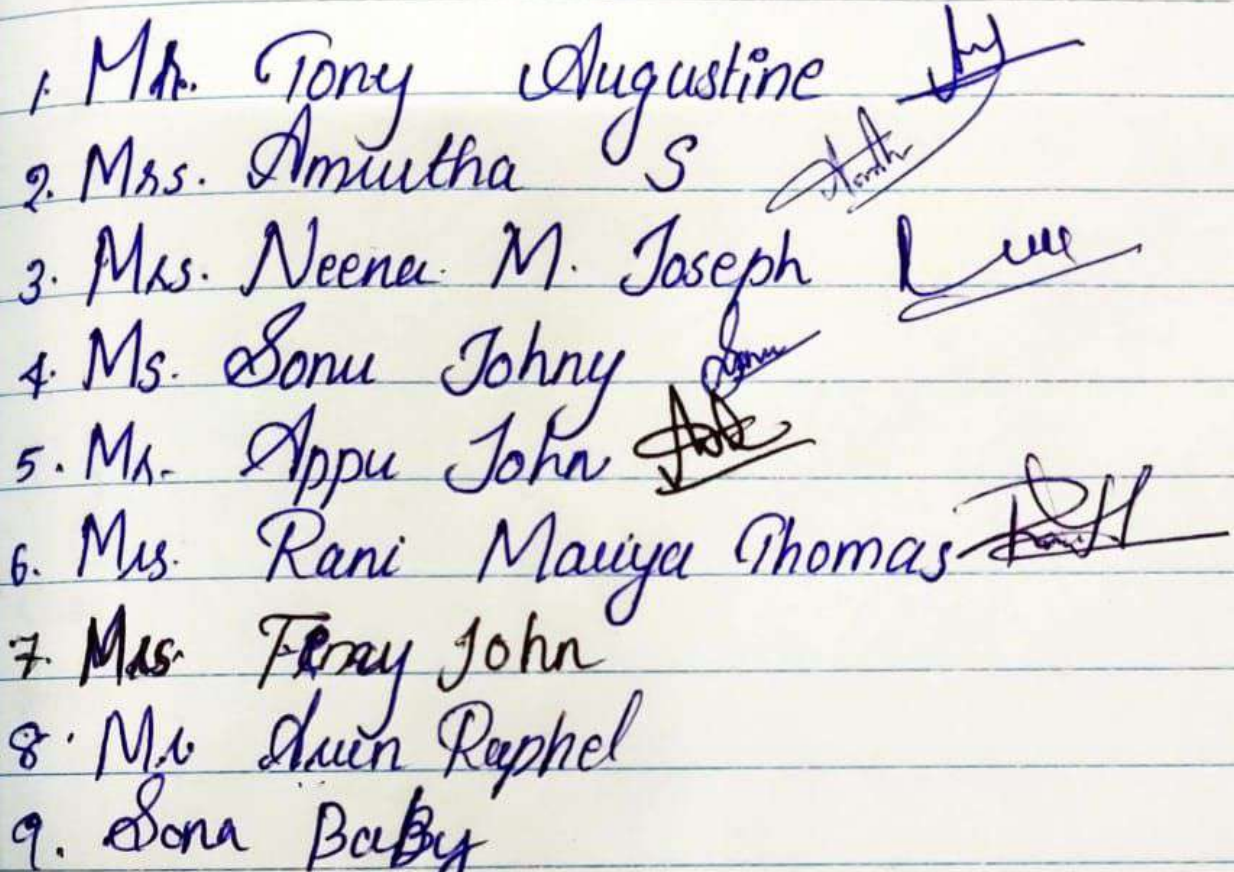 1. Mr. Tony Augustine
2. Mrs. Amrutha S
3. Mrs. Neena M. Joseph
4. Ms. Sonu Johny Sonu
5. Mr. Appu John
6. Mrs. Rani Mariya Thomas
7. Mrs. John
8. Mr Raphel
9. Sona BaBy